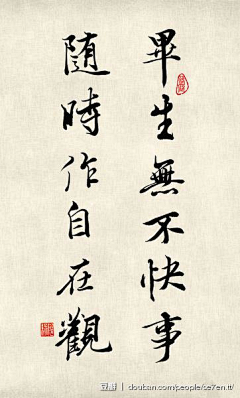 畢生無不快事
隨時作自在觀
豆瓣 | douban.com/people/se7en.tt/